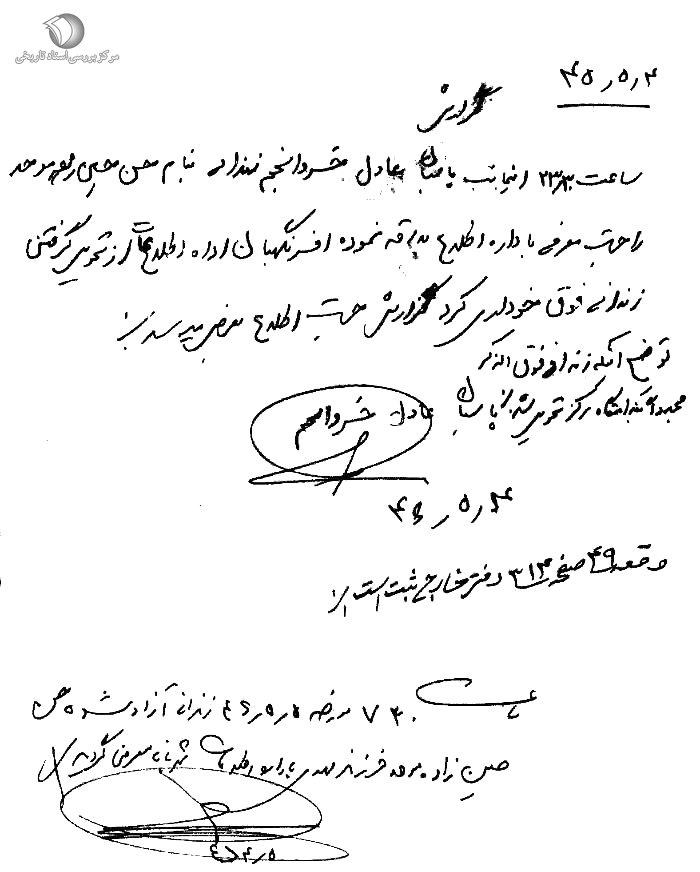 مرکز بررسی اسناد تاریخی
۴۵/۵/۴
گزارش
ساعت ۲۳/۳۰ اینجانب پاسبان عادل خسروانجم زندانی بنام محسن
را جهت معرفی باداره اطلاعات بدرقه نموده افسر نگهبان اداره اطلاعات از تحویل گرفتن
زندانی فوق خودداری کرد گزارش جهت اطلاع بعرض میرسد
توضیح آنکه زندانی فوق الذکر
مجددا به بازداشتگاه مرکز تحویل شد پاسبان عادل خسروانجم
۴۶/۵/۴
وقعه ۴۹ صفحه ۳۱۴ دفتر خارجی ثبت است
ساعت ۷۳۰ مورخه ۴۶/۵/۵ زندانی آزاد شده
حسین زاده موحد فرزند مهدی باداره اطلاعات شهربانی معرفی گردید